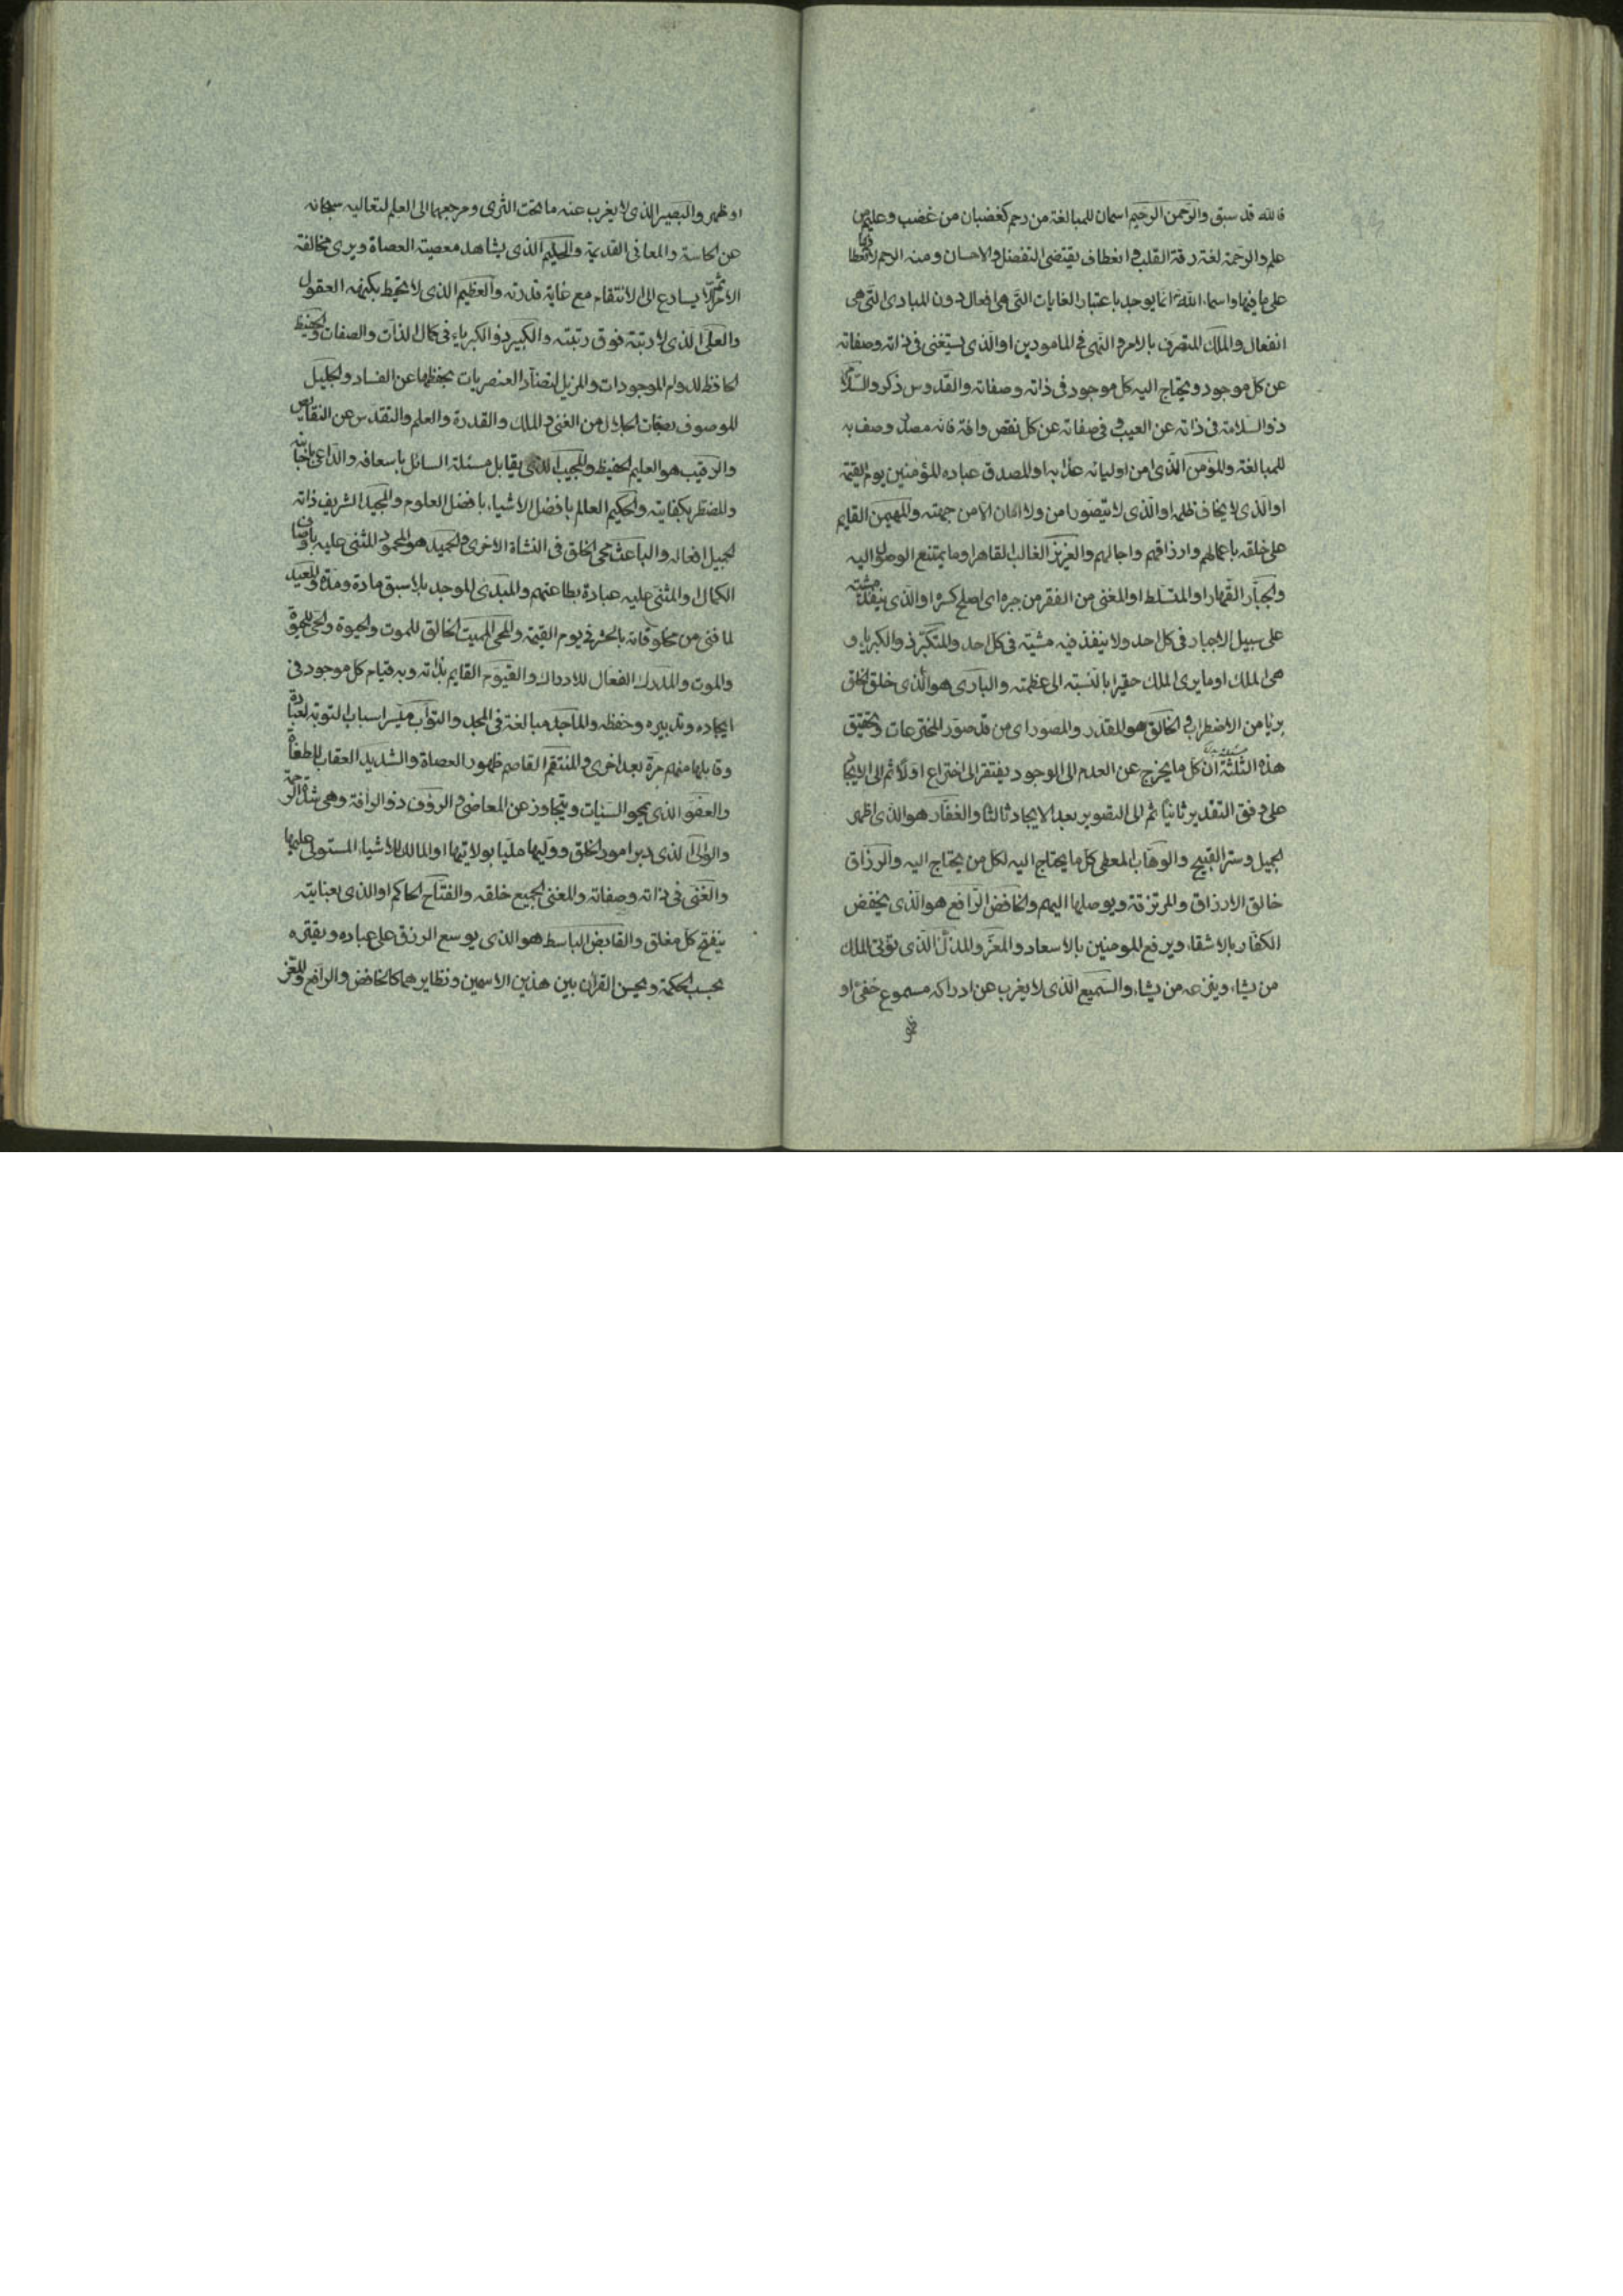 فالله قد سبق والرحمن الرحيم اسمان للمبالغة من رحم كغضبان من غضب وعليم من
علم والرحمة لغة رقة القلب وانعطاف يقتضى التفضل والاحسان ومنه الرحم لانعطافها
على ما فيها واسماء الله تع انما يوجد باعتبار الغايات التى هى افعال دون المبادى التى هى
انفعال والملك المتصرف بالامر والنهى فى المامورين او الذى يستغنى فى ذاته وصفاته
عن كل موجود ويحتاج اليه كل موجود فى ذاته وصفاته والقدوس ذكر والسلام
ذو السلامة فى ذاته عن العيب وفى صفاته عن كل نقص وافة فانه مصدر وصف به
للمبالغة والمؤمن الذى امن اوليائه عذابه او المصدق عباده المؤمنين يوم القيمة
او الذى لا يخاف ظلمه او الذى لا يتصور امن ولا امان الا من جهته والمهيمن القايم
على خلقه باعمالهم وارزاقهم واجالهم والعزيز الغالب القاهر او ما يمتنع الوصول اليه
والجبار القهار او المتسلط او المغنى من الفقر من جبره اى اصلح كسره او الذى ينفذ مشيته
على سبيل الاجبار فى كل احد ولا ينفذ فيه مشية فى كل احد والمتكبر ذو الكبرياء و
هى الملك او ما يرى الملك حقيرا بالنسبة الى عظمته والبارى هو الذى خلق الخلق
بريا من الاضطراب والخالق هو المقدر والمصور اى من قد صور المخترعات وتحقيق
هذه الثلثة ان كل ما يخرج عن العدم الى الوجود يفتقر الى اختراع اولا ثم الى الايجاد
على وفق التقدير ثانيا ثم الى التصوير بعد الايجاد ثالثا والغفار هو الذى اظهر
الجميل وستر القبيح والوهاب المعطى كل ما يحتاج اليه لكل من يحتاج اليه والرزاق
خالق الارزاق والمرتزقة ويوصلها اليهم والخافض الرافع هو الذى يخفض
الكفار بالاشقاء ويرفع المومنين بالاسعاد والمعز والمذل الذى يؤتى الملك
من يشاء وينزعه من يشاء والسميع الذى لا يغرب عن ادراكه مسموع خفى او
او ظهر والبصير الذى لا يغرب عنه ما تحت الثرى ومرجعهما الى العلم لتعاليه سبحانه
عن الحاسة والمعانى القديمة والحليم الذى يشاهد معصية العصاة ويرى مخالفة
الامر ثم لا يسارع الى الانتقام مع غاية قدرته والعظيم الذى لا يحيط بكنهه العقول
والعلى الذى لا رتبة فوق رتبته والكبير ذو الكبرياء فى كمال الذات والصفات والحفيظ
الحافظ لدوام الموجودات والمزيل لتضاد العنصريات بحفظها عن الفساد والجليل
الموصوف بصفات الجلال من الغنى والملك والقدرة والعلم والتقدس عن النقايص
والرقيب هو العليم الحفيظ والمجيب الذى يقابل مسئلة السائل باسعافه والداعى باجابته
والمضطر بكفايته والحكيم العالم بافضل الاشياء بافضل العلوم والمجيد الشريف ذاته
الجميل افعاله والباعث محى الخلق فى النشاة الاخرى والحميد هو المحمود المثنى عليه باوصاف
الكمال او المثنى عليه عباده بطاعتهم والمبدى الموجد بلا سبق مادة ومدة والمعيد
لما فنى من مخلوقاته بالحشر فى يوم القيمة والمحى المميت الخالق للموت والحيوة والحى للحيوة
والموت والمدرك الفعال للادراك والقيوم القايم بذاته وبه قيام كل موجود فى
ايجاده وتدبيره وحفظه والماجد مبالغة فى المجد والتواب ميسر اسباب التوبة لعباده
وقابلها منهم مرة بعد اخرى والمنتقم القاصم ظهور العصاة والشديد العقاب للطغاة
والعفو الذى يمحو السيئات ويتجاوز عن المعاصى والرؤف ذو الرافة وهى شدة الرحمة
والوالى الذى دبر امور الخلق ووليها مليا بولايتها او المالك للاشياء المستولى عليها
والغنى فى ذاته وصفاته والمغنى لجميع خلقه والفتاح الحاكم او الذى بعنايته
ينفتح كل مغلق والقابض الباسط هو الذى يوسع الرزق على عباده ويقتره
بحسب الحكمة ويحسن القران بين هذين الاسمين ونظايرهما كالخافض والرافع والمعز